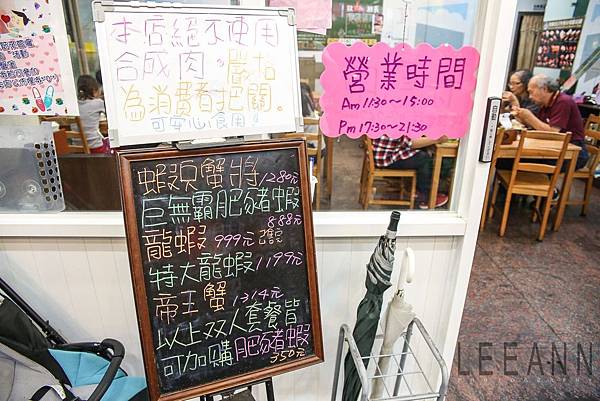 本店絕不使用
合成肉。嚴格
為消費者把關。
可安心食用!!
營業時間
Am 11:30～15:00
Pm 17:30～21:30
蝦兵蟹將1280元
巨無霸肥豬蝦
888元
龍蝦 999元
特大龍蝦1199元
帝王蟹 1314元
以上双人套餐皆
可加購肥豬蝦
350元
自動
LEEANN